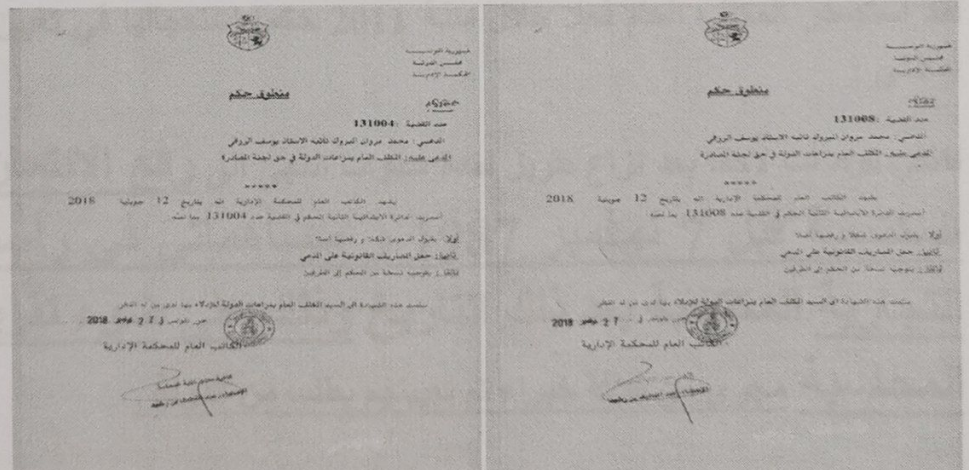 الجمهورية التونسية
مجلس الدولة
المحكمة الإدارية
منطوق حكم
عدد القضية : 131004
المدعي : محمد مروان المبروك نائبه الاستاذ يوسف الروقي
المدعى عليه : المكلف العام بنزاعات الدولة في حق لجنة المصادرة
*****
يشهد الكاتب العام للمحكمة الإدارية انه بتاريخ 12 جويلية 2018
أصدرت الدائرة الابتدائية الثانية الحكم في القضية عدد 131004 بما نصّه
أولا : بقبول الدعوى شكلا و رفضها أصلا
ثانيا : حمل المصاريف القانونية على المدعي
ثالثا : بتوجيه نسخة من الحكم إلى الطرفين
سلمت هذه الشهادة الى السيد المكلف العام بنزاعات الدولة للإدلاء بها لدى من له النظر
حرر بتونس في 27 نوفمبر 2018
الكاتب العام للمحكمة الإدارية
الجمهورية التونسية
مجلس الدولة
المحكمة الإدارية
منطوق حكم
عدد القضية : 131008
المدعي : محمد مروان المبروك نائبه الاستاذ يوسف الروقي
المدعى عليه : المكلف العام بنزاعات الدولة في حق لجنة المصادرة
*****
يشهد الكاتب العام للمحكمة الإدارية انه بتاريخ 12 جويلية 2018
أصدرت الدائرة الابتدائية الثانية الحكم في القضية عدد 131008 بما نصّه
أولا : بقبول الدعوى شكلا و رفضها أصلا
ثانيا : حمل المصاريف القانونية على المدعي
ثالثا : بتوجيه نسخة من الحكم إلى الطرفين
سلمت هذه الشهادة الى السيد المكلف العام بنزاعات الدولة للإدلاء بها لدى من له النظر
حرر بتونس في 27 نوفمبر 2018
الكاتب العام للمحكمة الإدارية